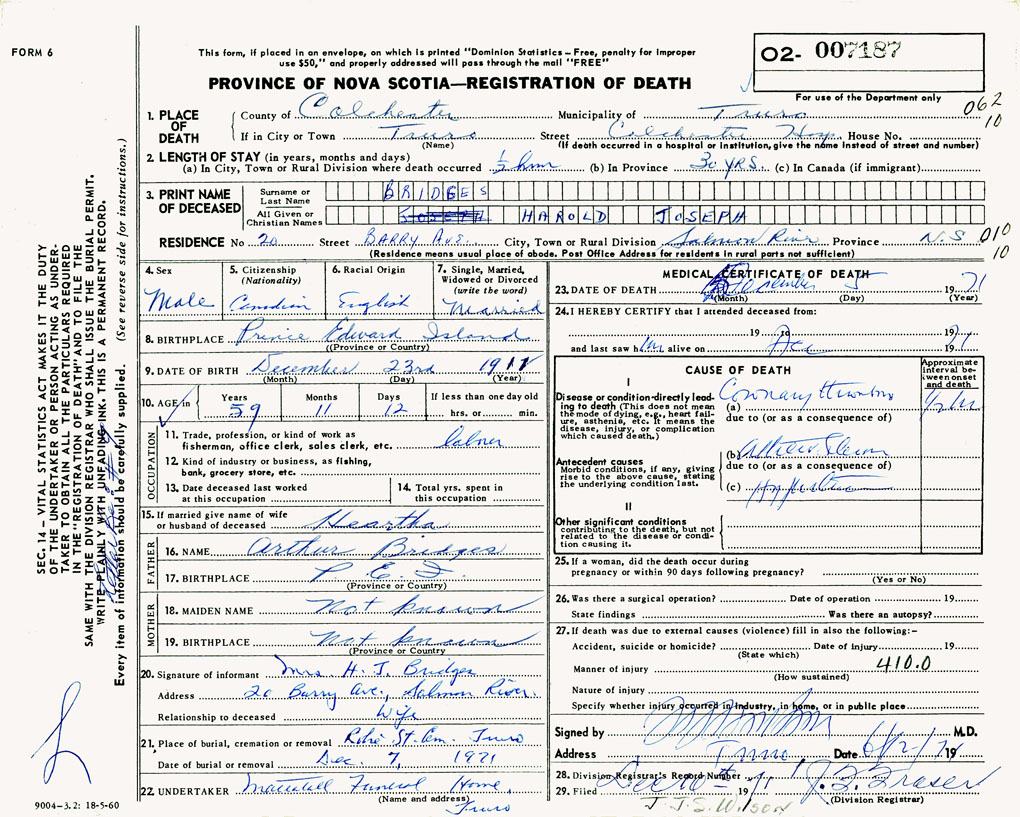 FORM 6
This form, if placed in an envelope, on which is printed "Dominion Statistics – Free, penalty for improper
use $50," and properly addressed will pass through the mail "FREE"
02- 007187
PROVINCE OF NOVA SCOTIA—REGISTRATION OF DEATH
For use of the Department only
062
10
1. PLACE OF DEATH
County of Colchester Municipality of Truro
If in City or Town Truro Street Colchester Hosp. House No.
(Name) (If death occurred in a hospital or institution, give the name instead of street and number)
2. LENGTH OF STAY (in years, months and days)
(a) In City, Town or Rural Division where death occurred ½ hour (b) In Province 30 YRS. (c) In Canada (if immigrant)
3. PRINT NAME OF DECEASED
Surname or Last Name BRIDGES
All Given or Christian Names JOSEPH HAROLD JOSEPH
RESIDENCE No 20 Street BARRY AVE. City, Town or Rural Division Salmon River Province N.S 010
10
(Residence means usual place of abode. Post Office Address for residents in rural parts not sufficient)
4. Sex
Male
5. Citizenship
(Nationality)
Canadian
6. Racial Origin
English
7. Single, Married,
Widowed or Divorced
(write the word)
Married
8. BIRTHPLACE Prince Edward Island
(Province or Country)
9. DATE OF BIRTH December 23rd 1911
(Month) (Day) (Year)
10. AGE in
Years Months Days If less than one day old
59 11 12 hrs. or min.
OCCUPATION
11. Trade, profession, or kind of work as
fisherman, office clerk, sales clerk, etc. labner
12. Kind of industry or business, as fishing,
bank, grocery store, etc.
13. Date deceased last worked
at this occupation
14. Total yrs. spent in
this occupation
15. If married give name of wife
or husband of deceased Heartha
FATHER
16. NAME Arthur Bridges
17. BIRTHPLACE P.E.I.
(Province or Country)
MOTHER
18. MAIDEN NAME Not known
19. BIRTHPLACE Not known
(Province or Country)
20. Signature of informant Mrs. H. J. Bridges
Address 20 Barry Ave., Salmon River.
Relationship to deceased Wife
21. Place of burial, cremation or removal Robie St. Cem. Truro
Date of burial or removal Dec. 7, 1971
22. UNDERTAKER Mattatall Funeral Home,
(Name and address)
Truro
MEDICAL CERTIFICATE OF DEATH
23. DATE OF DEATH December 5 1971
(Month) (Day) (Year)
24. I HEREBY CERTIFY that I attended deceased from:
19 to 19
and last saw him alive on Dec 1971
CAUSE OF DEATH
Approximate interval between onset and death
I
Disease or condition directly leading to death (This does not mean the mode of dying, e.g., heart failure, asthenia, etc. It means the disease, injury, or complication which caused death.)
(a) Coronary thrombosis
due to (or as a consequence of)
Antecedent causes
Morbid conditions, if any, giving rise to the above cause, stating the underlying condition last.
(b)
due to (or as a consequence of)
(c)
II
Other significant conditions
contributing to the death, but not related to the disease or condition causing it.
25. If a woman, did the death occur during
pregnancy or within 90 days following pregnancy?
(Yes or No)
26. Was there a surgical operation? Date of operation 19
State findings Was there an autopsy?
27. If death was due to external causes (violence) fill in also the following:–
Accident, suicide or homicide? Date of injury 19
(State which)
Manner of injury 410.0
(How sustained)
Nature of injury
Specify whether injury occurred in industry, in home, or in public place
Signed by M.D.
Address Truro Date 6/12/71 19
28. Division Registrar's Record Number
29. Filed Dec 10 1971 J. B. Fraser
(Division Registrar)
J.J.S. Wilson
SEC. 14 – VITAL STATISTICS ACT MAKES IT THE DUTY
OF THE UNDERTAKER OR PERSON ACTING AS UNDER-
TAKER TO OBTAIN ALL THE PARTICULARS REQUIRED
IN THE "REGISTRATION OF DEATH" AND TO FILE THE
SAME WITH THE DIVISION REGISTRAR WHO SHALL ISSUE THE BURIAL PERMIT.
WRITE PLAINLY WITH UNFADING INK. THIS IS A PERMANENT RECORD.
Every item of information should be carefully supplied. (See reverse side for instructions.)
9004–3.2: 18-5-60